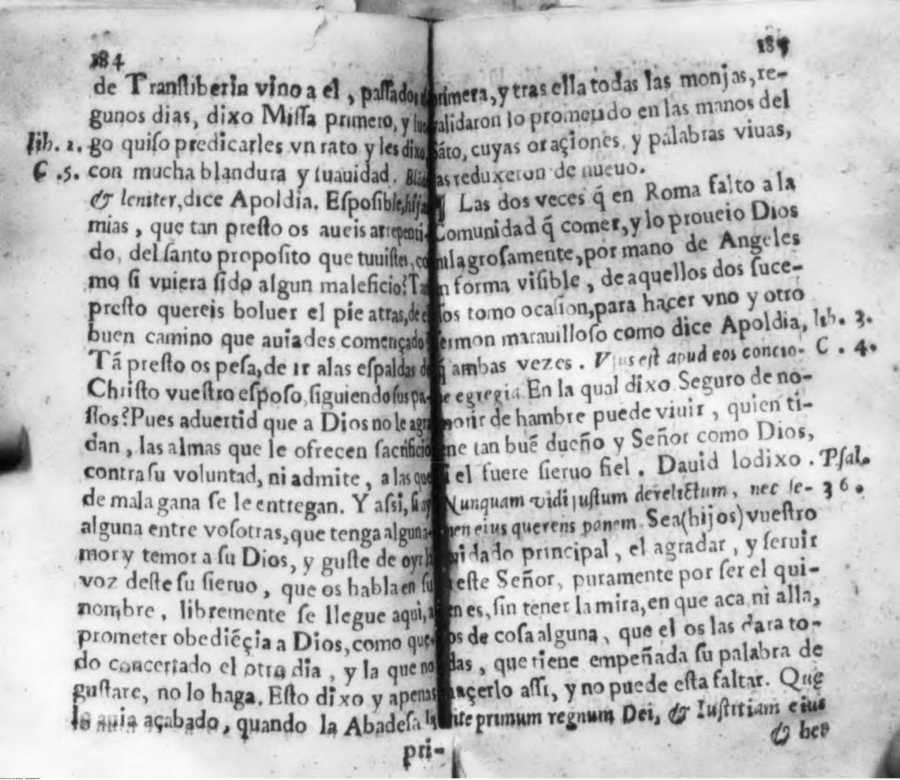 184
de Transtiberin vino a el, passados
gunos dias, dixo Missa primero, y
lib. 2. go quiso predicarles vn rato y les dixo
C. 5. con mucha blandura y suauidad.
& leniter, dice Apoldia. Es possible, hijas
mias, que tan presto os aueis arrepenti-
do, del santo proposito que tuuistes, co
mo si vuiera sido algun maleficio? Tã
presto quereis boluer el pie atras, de
buen camino que auiades començado
Tã presto os pesa, de ir a las espaldas de
Christo vuestro esposo, siguiendo sus pa-
ssos? Pues aduertid que a Dios no le agra
dan, las almas que le ofrecen sacrificio
contra su voluntad, ni admite, a las que
de mala gana se le entregan. Y assi, si ay
alguna entre vosotras, que tenga alguna
mor y temor a su Dios, y guste de oyr la
voz deste su sieruo, que os habla en su
nombre, libremente se llegue aqui, a
prometer obediẽçia a Dios, como que-
do concertado el otro dia, y la que no
gustare, no lo haga. Esto dixo y apenas
lo auia açabado, quando la Abadesa
pri-
primera, y tras ella todas las monjas, re-
validaron lo prometido en las manos del
sãto, cuyas oraçiones, y palabras viuas,
las reduxeron de nueuo.
¶ Las dos veces q̃ en Roma falto a la
Comunidad q̃ comer, y lo proueio Dios
milagrosamente, por mano de Angeles
en forma visible, de aquellos dos suce-
sos tomo ocasion, para haçer vno y otro
sermon marauilloso como dice Apoldia, lib. 3.
q̃ ambas vezes. Vsus est apud eos concio- C. 4.
ne egregia. En la qual dixo Seguro de no-
morir de hambre puede viuir, quien ti-
ene tan buẽ dueño y Señor como Dios,
si el fuere sieruo fiel. Dauid lo dixo. Psal.
Nunquam vidi justum derelictum, nec se- 36.
men eius querens panem. Sea (hijos) vuestro
cuidado principal, el agradar, y seruir
a este Señor, puramente por ser el qui-
en es, sin tener la mira, en que aca ni alla,
os de cosa alguna, que el os las dara to-
das, que tiene empeñada su palabra de
haçerlo assi, y no puede esta faltar. Que
rite primum regnum Dei, & Iustitiam eius
& hec